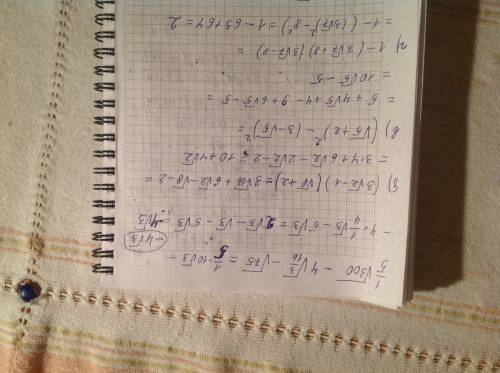 1/5 √300 − 4√3/16 − √75 = 1/5 · 10√3 −
− 4 · 1/4 √3 − 5√3 = 2√3 − √3 − 5√3 = −4√3
−4√3
б) (3√2 − 1)(√8 + 2) = 3√16 + 6√2 − √8 − 2 =
= 3·4 + 6√2 − 2√2 − 2 = 10 + 4√2
в) (√5 + 2)² − (3 − √5)² =
= 5 + 4√5 + 4 − 9 + 6√5 − 5 =
= 10√5 − 5
г) 1 − (3√7 + 8)(3√7 − 8) =
= 1 − ((3√7)² − 8²) = 1 − 63 + 64 = 2